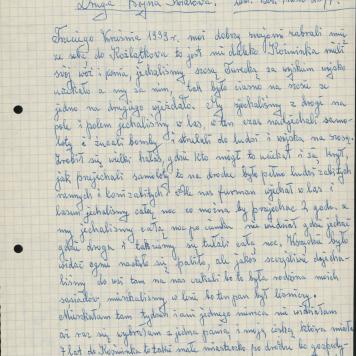 Druga Wojna Światowa.
Trzeciego Września 1939 r. moi dobrzy znajomi zabrali mię
ze sobą do Koźlątkowa to jest nie daleko Koźminka mieli
swój wóz i konia, jechaliśmy szosą Turecką za wojskiem wojsko
uciekało a my za nim, tak było ciasno na szosie że
jedno na drugiego wjeżdżało. My zjechaliśmy z drogi na
pole i polem jechaliśmy w las, w ten czas nadjechali samo-
loty i zucali bomby i strzelali do ludzi i wojska na szosę.
Zrobił się wielki hałas, gdzie kto mógł to uciekał i się krył,
jak przejechali samoloty to na drodze było pełno ludzi zabitych
rannych i koni zabitych. Ale nasz furman wjechał w las i
lasem jechaliśmy całą noc co można by przejechać 2 godz. a
my jechaliśmy całą noc po ciemku nie widział gdzie jechać
gdzie droga i takeśmy się tułali całą noc. Wszędzie było
widać ognie nastało się paliło, ale jakoś szczęśliwie dojecha-
liśmy do wsi tam na nas czekali bo to była rodzina moich
sąsiadów mieszkaliśmy w lesie bo ten pan był leśniczy.
Mieszkałam tam tydzień i ani jednego niemca nie widziałam
aż raz się wybrałam z jedną panią i moją córką która miała
7 lat do Koźminka to takie małe miasteczko po drodze bo gospody-